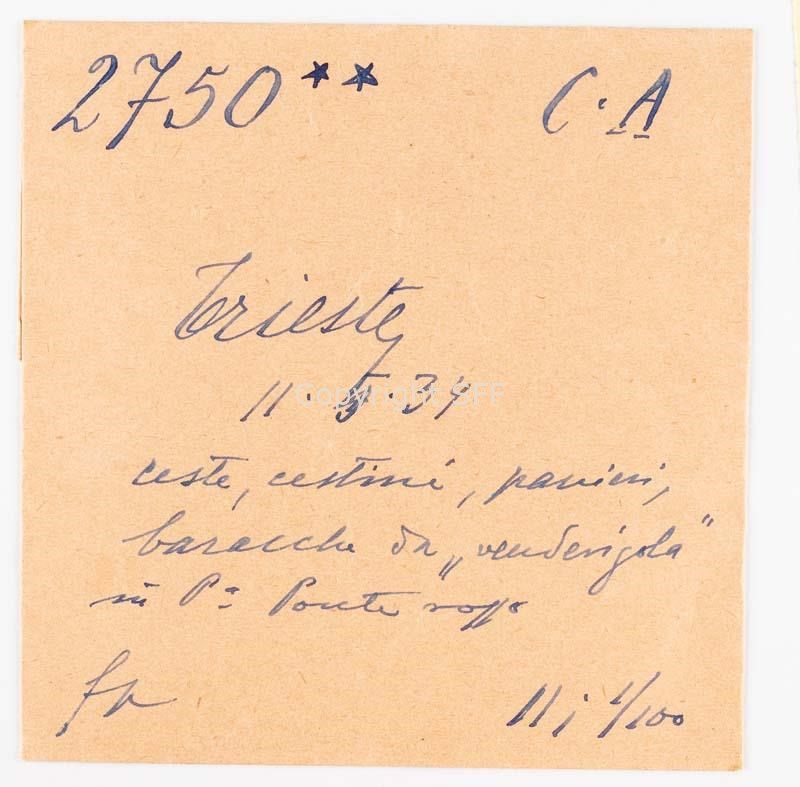 2750** C.A
Trieste
11.5.34
Copyright SFF
ceste, cestini, panieri,
baracche da „venderigola"
in Pª Ponte rosso
fv
11 i 1/100